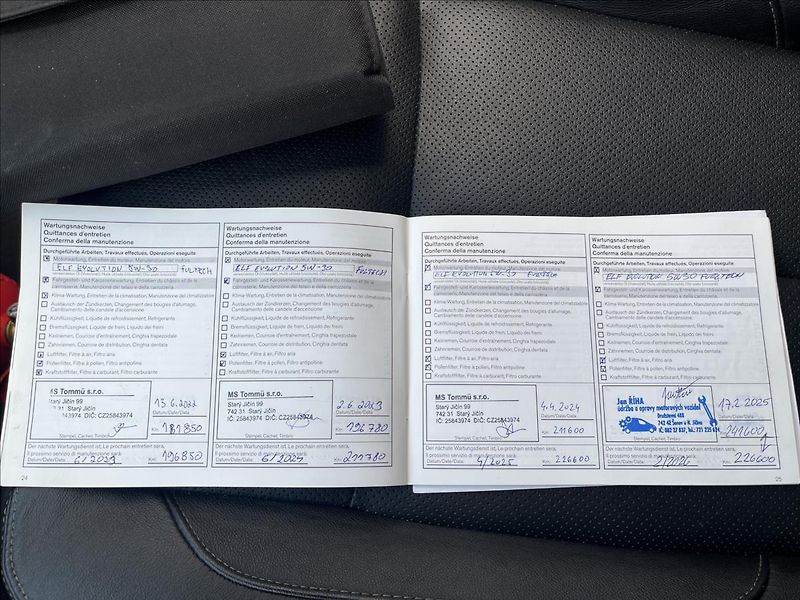 Wartungsnachweise
Quittances d'entretien
Conferma della manutenzione
Durchgeführte Arbeiten, Travaux effectués, Operazioni eseguite
Motorwartung, Entretien du moteur, Manutenzione del motore
ELF EVOLUTION 5W-30 FULTECH
Fahrgestell- und Karosseriewartung, Entretien du châssis et de la
carrosserie, Manutenzione del telaio e della carrozzeria
Klima-Wartung, Entretien de la climatisation, Manutenzione del climatizzatore
Austausch der Zündkerzen, Changement des bougies d'allumage,
Cambiamento delle candele d'accensione
Kühlflüssigkeit, Liquide de refroidissement, Refrigerante
Bremsflüssigkeit, Liquide de frein, Liquido dei freni
Keilriemen, Courroie trapézoïdale, Cinghia trapezoidale
Zahnriemen, Courroie de distribution, Cinghia dentata
Luftfilter, Filtre à air, Filtro aria
Pollenfilter, Filtre à pollen, Filtro antipolline
Kraftstofffilter, Filtre à carburant, Filtro carburante
MS Tommü s.r.o.
Starý Jičín 99
31 Starý Jičín
IČ: 25843974 DIČ: CZ25843974
Stempel, Cachet, Timbro
13.6.2022
Datum/Date/Data
Km: 181850
Der nächste Wartungsdienst ist, Le prochain entretien sera,
Il prossimo servizio di manutenzione sarà:
Datum/Date/Data: 6/2023 Km: 196850
24
Wartungsnachweise
Quittances d'entretien
Conferma della manutenzione
Durchgeführte Arbeiten, Travaux effectués, Operazioni eseguite
Motorwartung, Entretien du moteur, Manutenzione del motore
ELF EVOLUTION 5W-30 FULTECH
Fahrgestell- und Karosseriewartung, Entretien du châssis et de la
carrosserie, Manutenzione del telaio e della carrozzeria
Klima-Wartung, Entretien de la climatisation, Manutenzione del climatizzatore
Austausch der Zündkerzen, Changement des bougies d'allumage,
Cambiamento delle candele d'accensione
Kühlflüssigkeit, Liquide de refroidissement, Refrigerante
Bremsflüssigkeit, Liquide de frein, Liquido dei freni
Keilriemen, Courroie trapézoïdale, Cinghia trapezoidale
Zahnriemen, Courroie de distribution, Cinghia dentata
Luftfilter, Filtre à air, Filtro aria
Pollenfilter, Filtre à pollen, Filtro antipolline
Kraftstofffilter, Filtre à carburant, Filtro carburante
MS Tommü s.r.o.
Starý Jičín 99
742 31 Starý Jičín
IČ: 25843974 DIČ: CZ25843974
Stempel, Cachet, Timbro
2.6.2023
Datum/Date/Data
Km: 196780
Der nächste Wartungsdienst ist, Le prochain entretien sera,
Il prossimo servizio di manutenzione sarà:
Datum/Date/Data: 6/2024 Km: 211780
Wartungsnachweise
Quittances d'entretien
Conferma della manutenzione
Durchgeführte Arbeiten, Travaux effectués, Operazioni eseguite
Motorwartung, Entretien du moteur, Manutenzione del motore
ELF EVOLUTION 5W-30 FULTECH
Fahrgestell- und Karosseriewartung, Entretien du châssis et de la
carrosserie, Manutenzione del telaio e della carrozzeria
Klima-Wartung, Entretien de la climatisation, Manutenzione del climatizzatore
Austausch der Zündkerzen, Changement des bougies d'allumage,
Cambiamento delle candele d'accensione
Kühlflüssigkeit, Liquide de refroidissement, Refrigerante
Bremsflüssigkeit, Liquide de frein, Liquido dei freni
Keilriemen, Courroie trapézoïdale, Cinghia trapezoidale
Zahnriemen, Courroie de distribution, Cinghia dentata
Luftfilter, Filtre à air, Filtro aria
Pollenfilter, Filtre à pollen, Filtro antipolline
Kraftstofffilter, Filtre à carburant, Filtro carburante
MS Tommü s.r.o.
Starý Jičín 99
742 31 Starý Jičín
IČ: 25843974 DIČ: CZ25843974
Stempel, Cachet, Timbro
4.4.2024
Datum/Date/Data
Km: 211600
Der nächste Wartungsdienst ist, Le prochain entretien sera,
Il prossimo servizio di manutenzione sarà:
Datum/Date/Data: 4/2025 Km: 226600
Wartungsnachweise
Quittances d'entretien
Conferma della manutenzione
Durchgeführte Arbeiten, Travaux effectués, Operazioni eseguite
Motorwartung, Entretien du moteur, Manutenzione del motore
ELF EVOLUTION 5W30 FULLTECH
Fahrgestell- und Karosseriewartung, Entretien du châssis et de la
carrosserie, Manutenzione del telaio e della carrozzeria
Klima-Wartung, Entretien de la climatisation, Manutenzione del climatizzatore
Austausch der Zündkerzen, Changement des bougies d'allumage,
Cambiamento delle candele d'accensione
Kühlflüssigkeit, Liquide de refroidissement, Refrigerante
Bremsflüssigkeit, Liquide de frein, Liquido dei freni
Keilriemen, Courroie trapézoïdale, Cinghia trapezoidale
Zahnriemen, Courroie de distribution, Cinghia dentata
Luftfilter, Filtre à air, Filtro aria
Pollenfilter, Filtre à pollen, Filtro antipolline
Kraftstofffilter, Filtre à carburant, Filtro carburante
Jan ŘÍHA
údržba a opravy motorových vozidel
Družstevní 488
742 42 Šenov u N. Jičína
17.2.2025
Datum/Date/Data
Km: 241600
Der nächste Wartungsdienst ist, Le prochain entretien sera,
Il prossimo servizio di manutenzione sarà:
Datum/Date/Data: 2/2026 Km: 226600
25